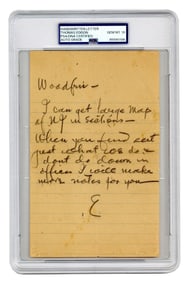 HANDWRITTEN LETTER
THOMAS EDISON
PSA/DNA CERTIFIED
AUTO GRADE
GEM MT 10
PSA
Woodfin -
I can get large Map
of NJ in sections -
When you find out
just what we do &
dont do down in
I will make
notes for you
E